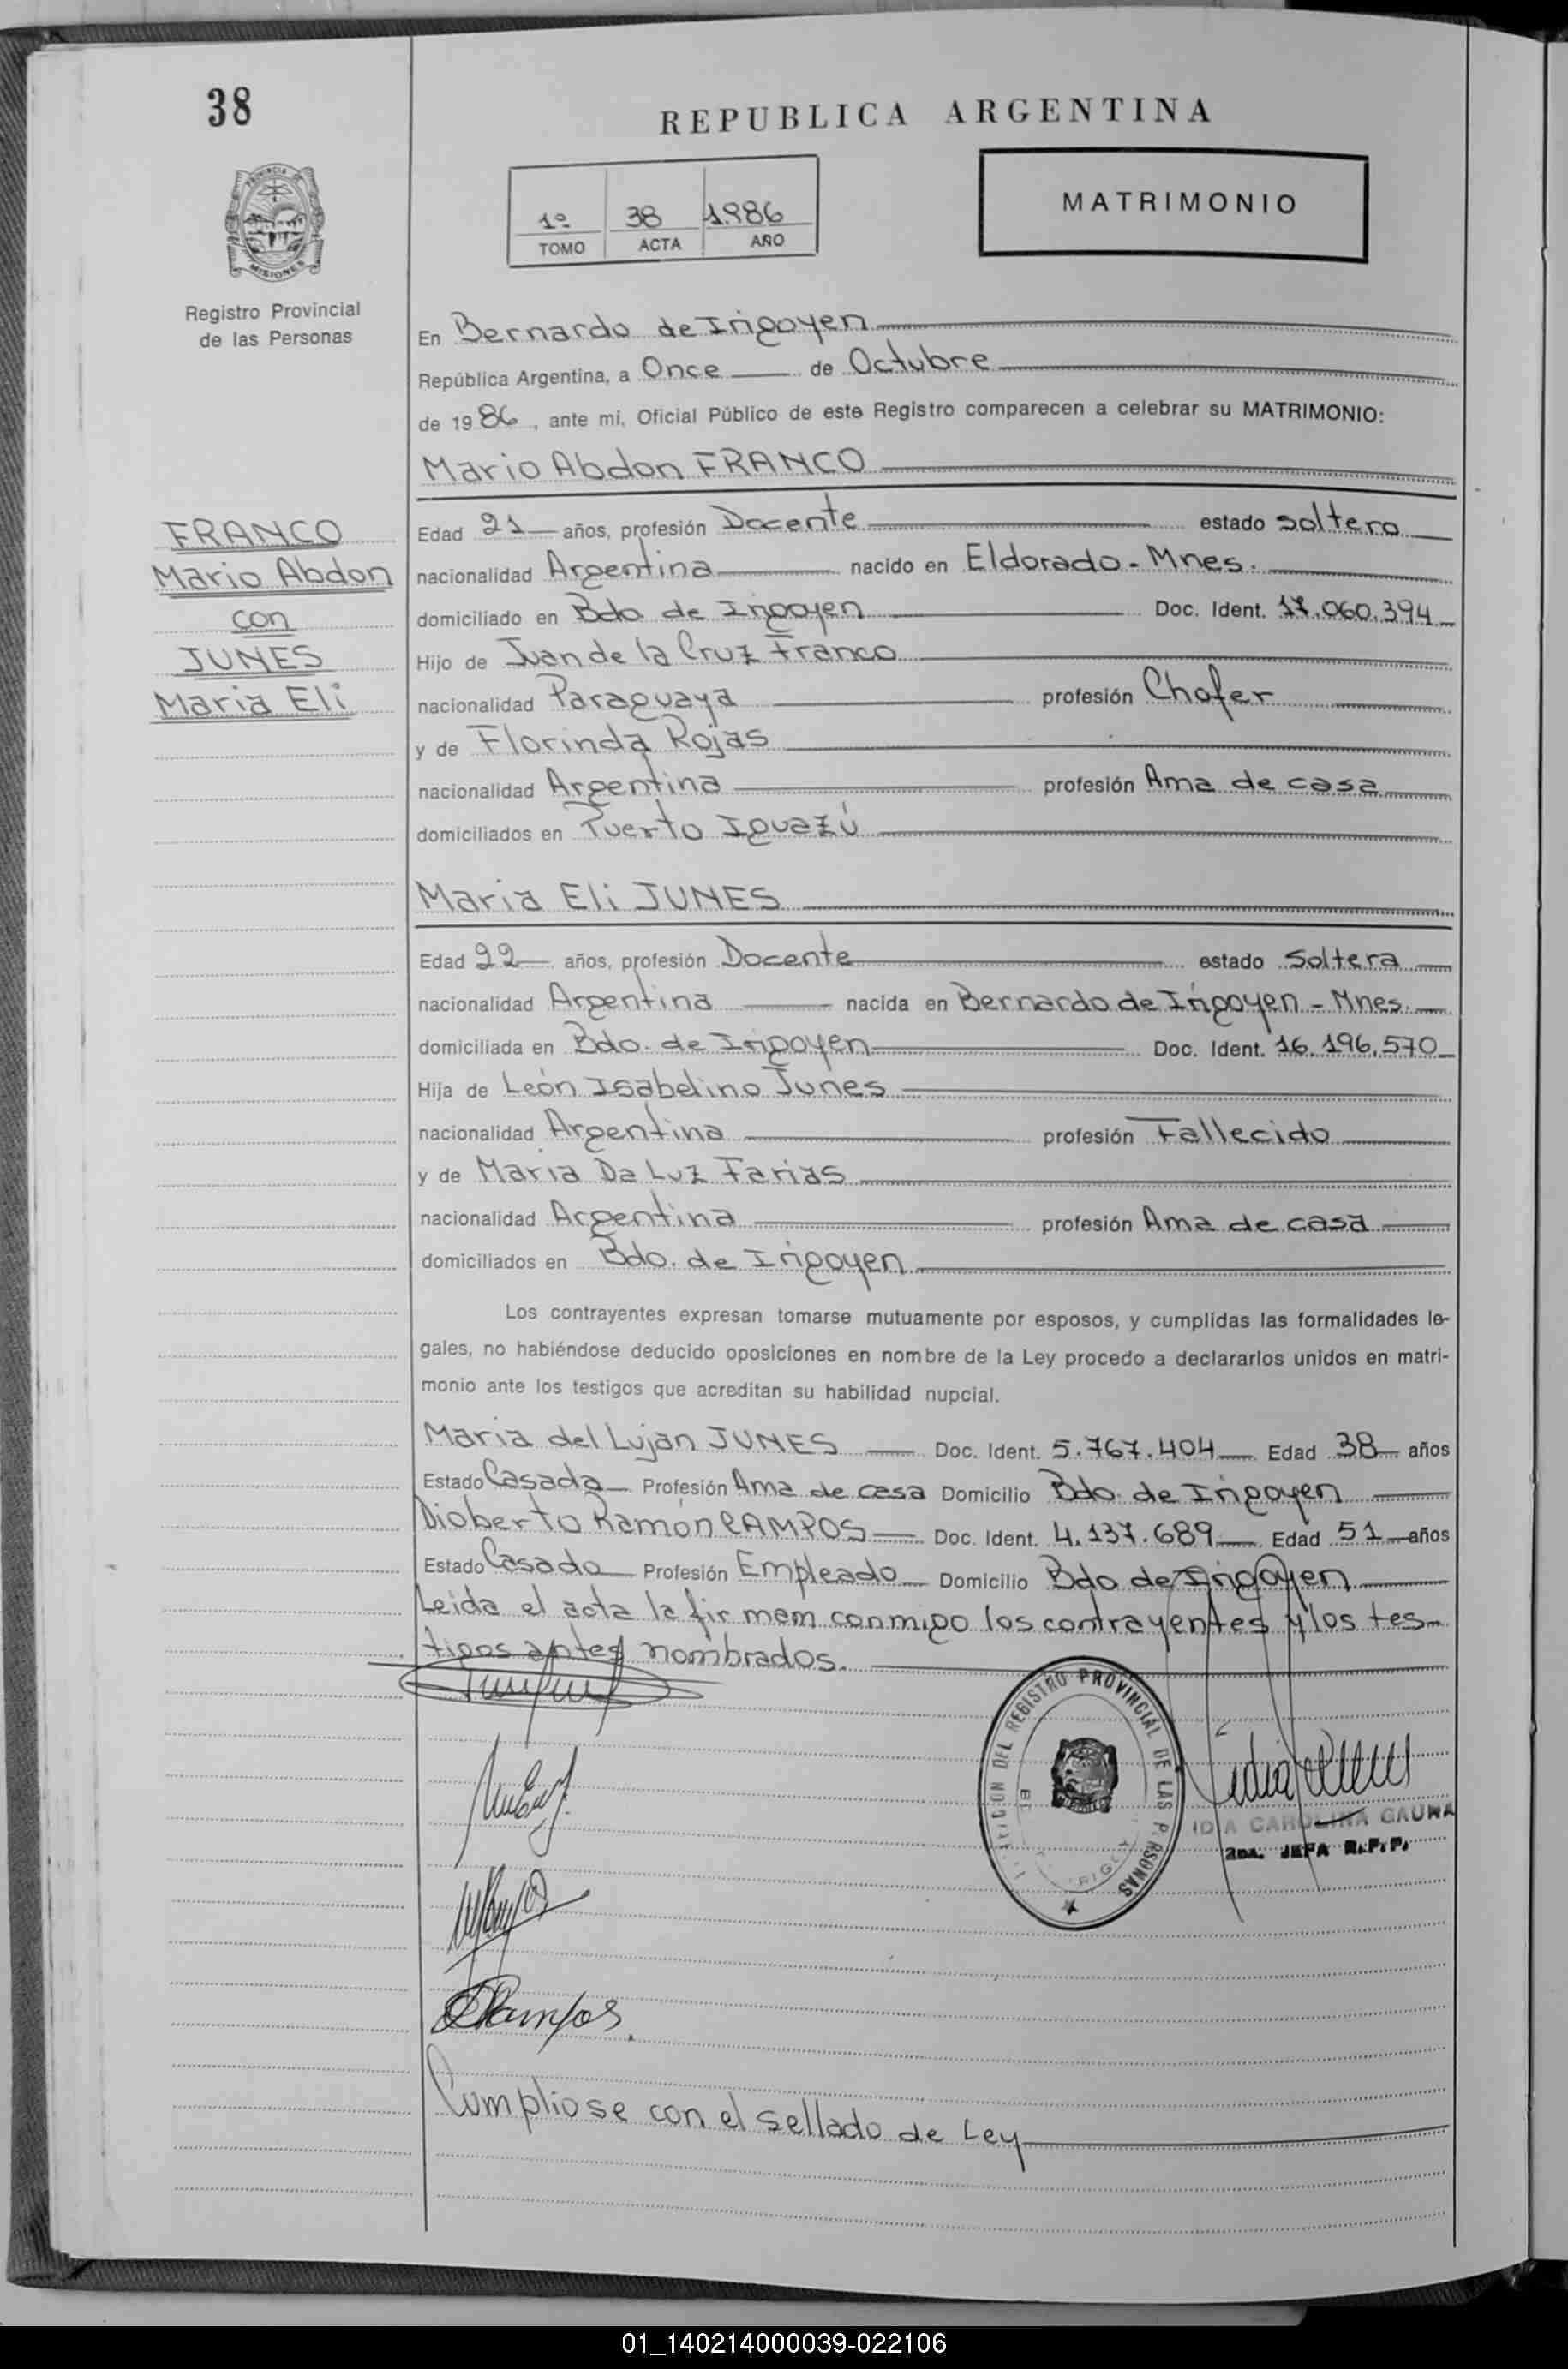 38
REPUBLICA ARGENTINA
PROVINCIA DE
MISIONES
Registro Provincial
de las Personas
1º 38 1.986
TOMO ACTA AÑO
MATRIMONIO
En Bernardo de Irigoyen
República Argentina, a Once de Octubre
de 19 86, ante mi, Oficial Público de este Registro comparecen a celebrar su MATRIMONIO:
Mario Abdon FRANCO
FRANCO
Mario Abdon
con
JUNES
Maria Eli
Edad 21 años, profesión Docente estado soltero
nacionalidad Argentina nacido en Eldorado - Mnes.
domiciliado en Bdo de Irigoyen Doc. Ident. 17.060.394
Hijo de Juan de la Cruz Franco
nacionalidad Paraguaya profesión Chofer
y de Florinda Rojas
nacionalidad Argentina profesión Ama de casa
domiciliados en Puerto Iguazú
Maria Eli JUNES
Edad 22 años, profesión Docente estado Soltera
nacionalidad Argentina nacida en Bernardo de Irigoyen - Mnes.
domiciliada en Bdo. de Irigoyen Doc. Ident. 16.196.570
Hija de León Isabelino Junes
nacionalidad Argentina profesión Fallecido
y de Maria Da Luz Farias
nacionalidad Argentina profesión Ama de casa
domiciliados en Bdo. de Irigoyen
Los contrayentes expresan tomarse mutuamente por esposos, y cumplidas las formalidades le-
gales, no habiéndose deducido oposiciones en nombre de la Ley procedo a declararlos unidos en matri-
monio ante los testigos que acreditan su habilidad nupcial.
Maria del Lujan JUNES Doc. Ident. 5.767.404 Edad 38 años
Estado Casada Profesión Ama de casa Domicilio Bdo. de Irigoyen
Dioberto Ramón CAMPOS Doc. Ident. 4.137.689 Edad 51 años
Estado Casado Profesión Empleado Domicilio Bdo de Irigoyen
Leida el acta la firmam conmigo los contrayentes y los tes-
tigos antes nombrados.
DEL REGISTRO PROVINCIAL DE LAS PERSONAS
CAROLINA GAUNA
2da. JEFA R.P.P.
Campos.
Cumpliose con el sellado de Ley
01_140214000039-022106